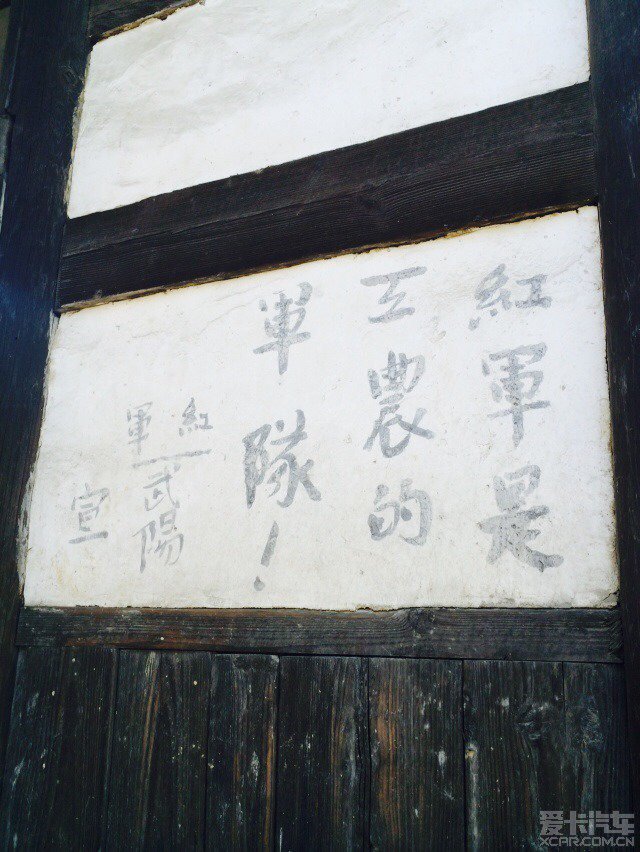 紅軍是
工農的
軍隊！
紅軍
武陽
宣
爱卡汽车
XCAR.COM.CN